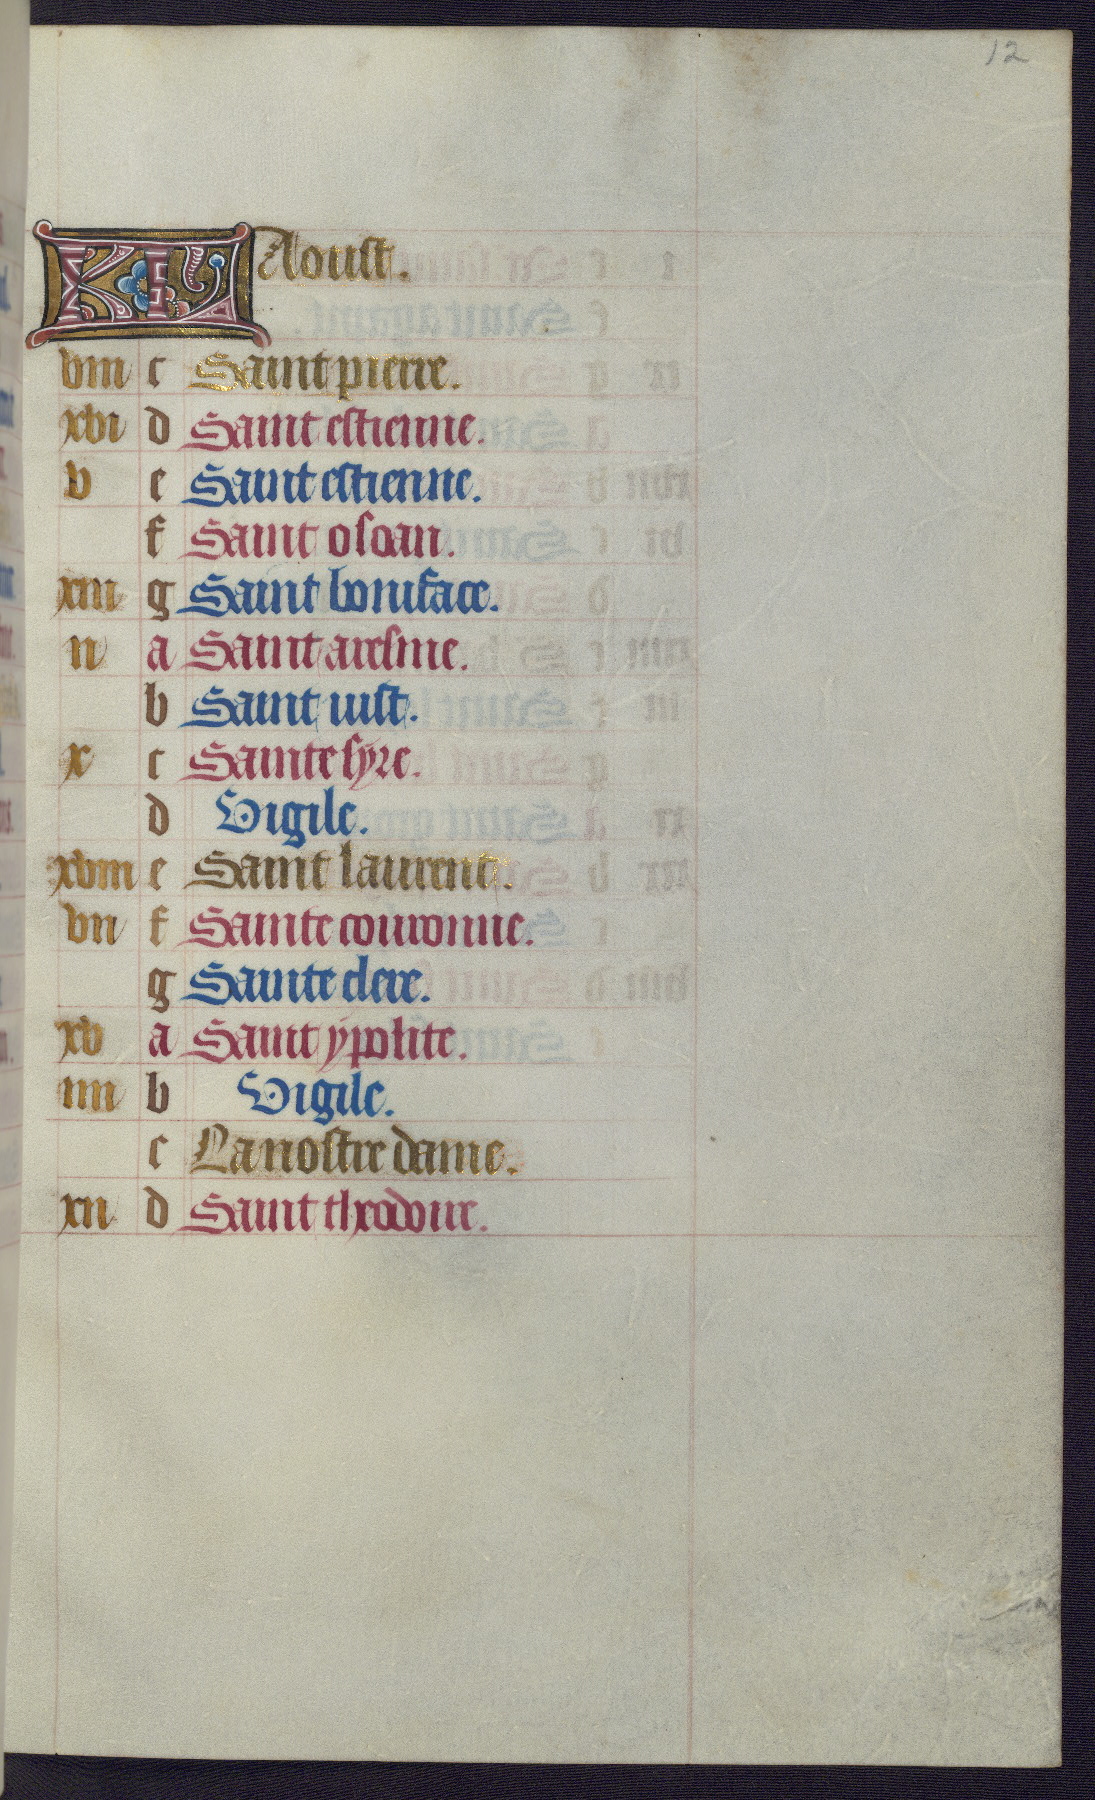 12
KL Aoust.
viii c Saint pierre.
xvi d Saint estienne.
v e Saint estienne.
f Saint osoan.
xiii g Saint boniface.
ii a Saint aresme.
b Saint iust.
x c Sainte syre.
d Vigile.
xviii e Saint laurent.
vii f Sainte couronne.
g Sainte clere.
xv a Saint ypolite.
iiii b Vigile.
c La nostre dame.
xii d Saint theodore.